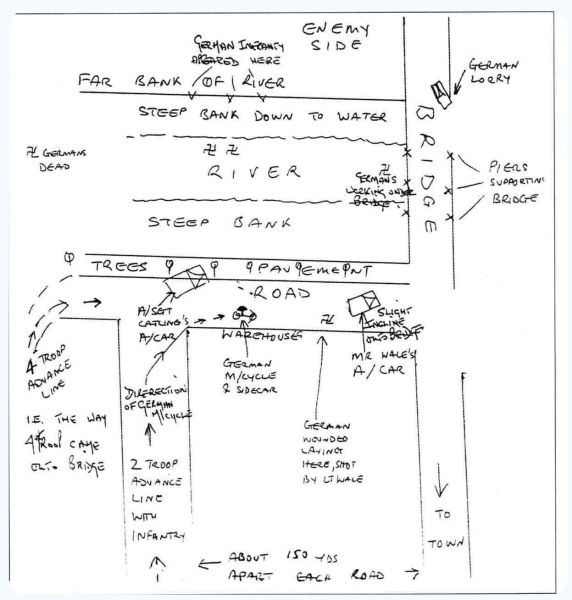 ENEMY
SIDE
GERMAN INFANTRY
APPEARED HERE
GERMAN
LORRY
FAR BANK OF RIVER
STEEP BANK DOWN TO WATER
BRIDGE
卐 GERMANS
DEAD
卐 卐
RIVER
卐
GERMANS
WORKING UNDER
BRIDGE
PIERS
SUPPORTING
BRIDGE
STEEP BANK
TREES
PAVEMENT
ROAD
A/SGT
CATLING'S
A/CAR
WAREHOUSE
卐
SLIGHT
INCLINE
ONTO BRIDGE
MR WALE'S
A/CAR
4 TROOP
ADVANCE
LINE
GERMAN
M/CYCLE
& SIDECAR
DIRERECTION
OF GERMAN
M/CYCLE
I.E. THE WAY
4 TROOP CAME
ONTO BRIDGE
GERMAN
WOUNDED
LAYING
HERE, SHOT
BY LT WALE
2 TROOP
ADVANCE
LINE
WITH
INFANTRY
TO
TOWN
ABOUT 150 YDS
APART EACH ROAD